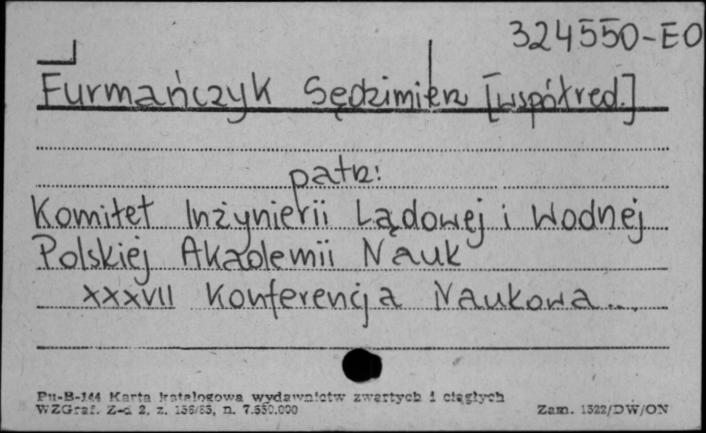 324550-EO
Furmańczyk Sędzimierz [współred.]
patrz:
Komitet Inżynierii Lądowej i Wodnej
Polskiej Akademii Nauk
XXXVII Konferencja Naukowa...
Pu-B-144 Karta katalogowa wydawnictw zwartych i ciągłych
WZGraf. Z-d 2, z. 156/83, n. 7.550.000
Zam. 1522/DW/ON